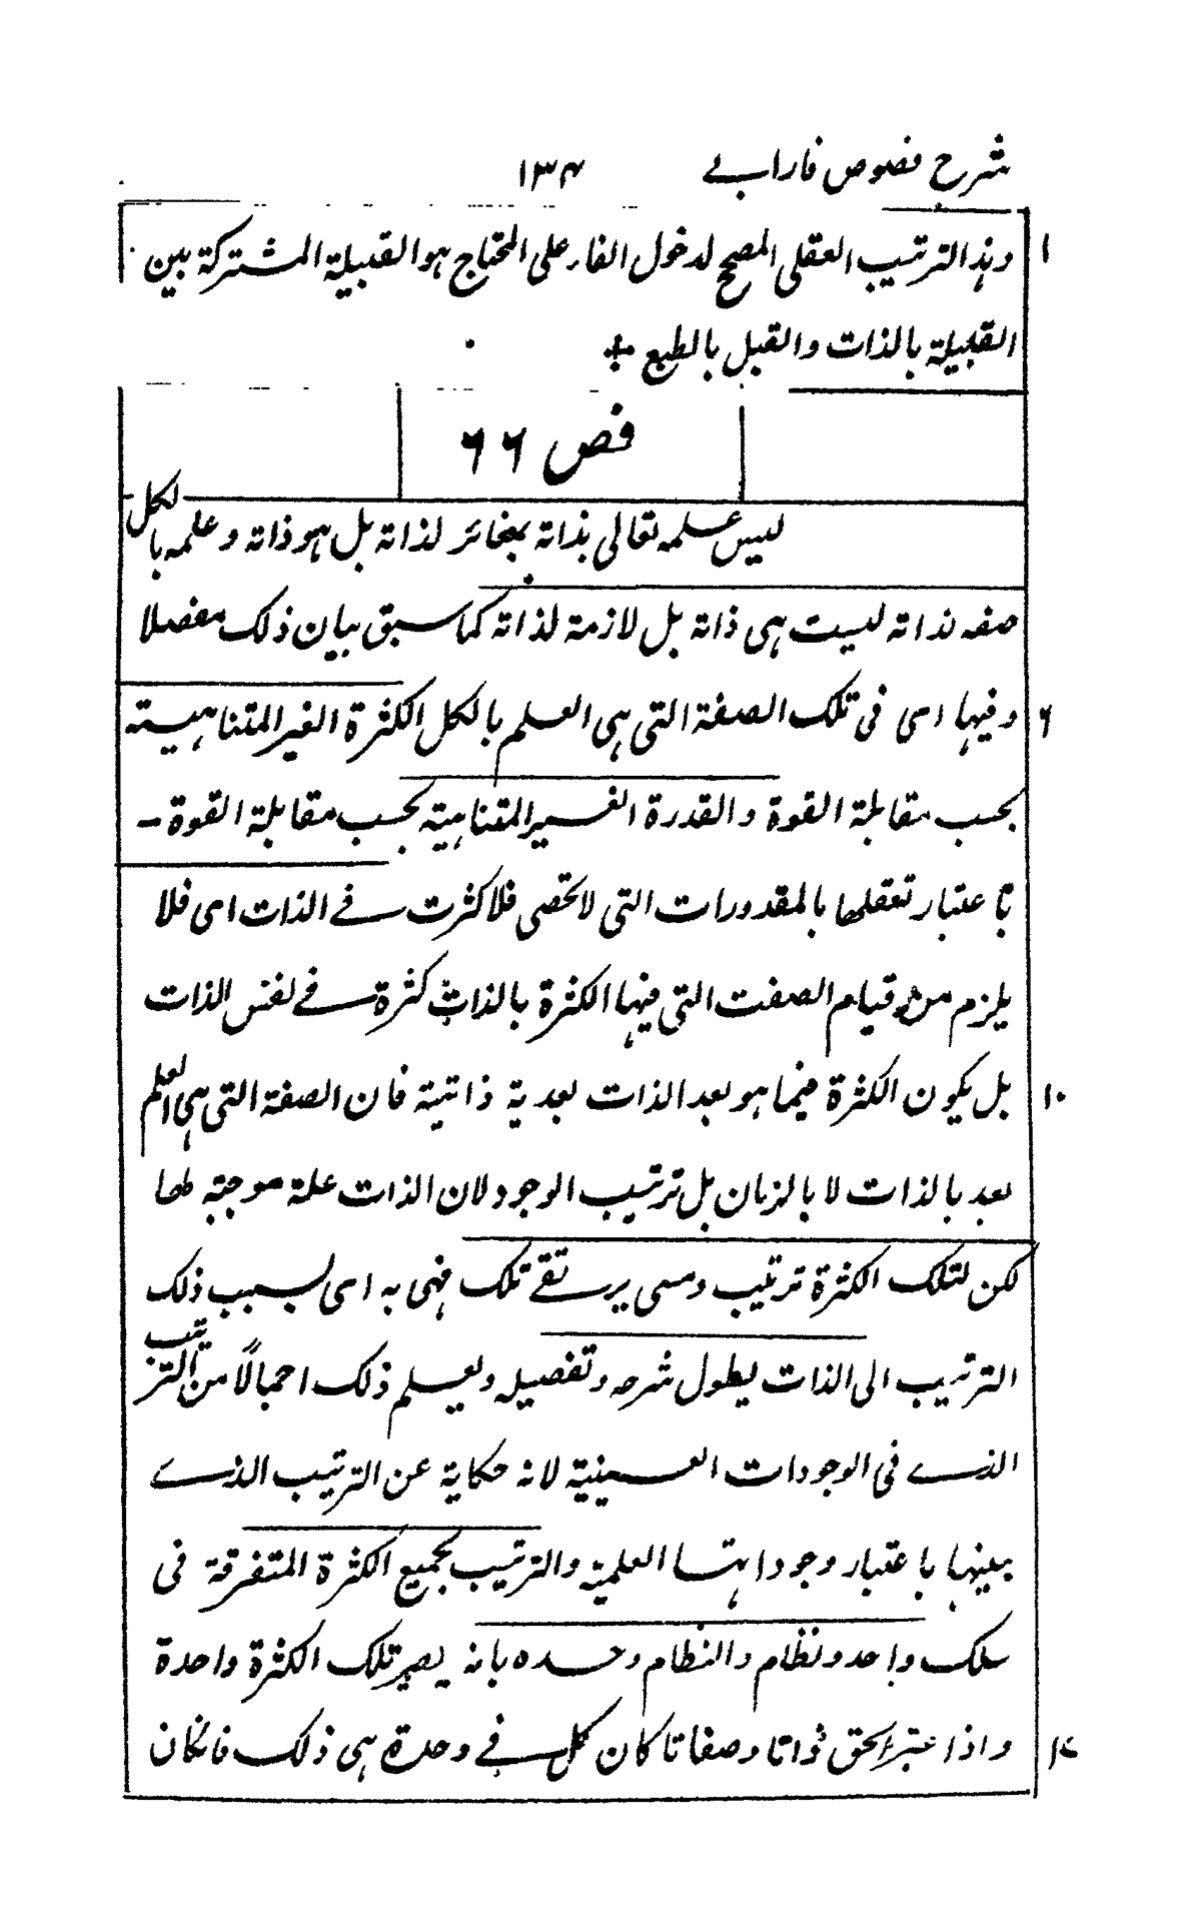 شرح فصوص فارابے ۱۳۴
۱ وہذا الترتیب العقلی المصحح لدخول الفار علی المحتاج ہو القبیلة المشترکة بین
القبیلة بالذات والقبل بالطبع
فص ۶۶
لیس علمہ تعالی بذاتہ بمغائر لذاتہ بل ہو ذاتہ وعلمہ بالکل
صفہ لذاتہ لیست ہی ذاتہ بل لازمة لذاتہ کما سبق بیان ذلک مفصلا
۶ وفیہا ای فی تلک الصفة التی ہی العلم بالکل الکثرة الغیر المتناہیتہ
بحسب مقابلة القوة والقدرة الغیر المتناہیة بحسب مقابلة القوة -
باعتبار تعقلہا بالمقدورات التی لا تحصی فلا کثرت فے الذات ای فلا
یلزم من قیام الصفت التی فیہا الکثرة بالذات کثرة فے نفس الذات
۱۰ بل یکون الکثرة فیما ہو بعد الذات بعدیة ذاتیة فان الصفة التی ہی العلم
بعد بالذات لا بالزمان بل ترتیب الوجود لان الذات علة موجبتہ لہا
لکن لتلک الکثرة ترتیب ومسی یرتقے تلک فہی بہ ای بسبب ذلک
الترتیب الی الذات یطول شرحہ وتفصیلہ ویعلم ذلک اجمالًا من الترتیب
الذے فی الوجودات العینیة لانہ حکایة عن الترتیب الذے
بینہا باعتبار وجوداتہا العلمیة والترتیب بجمیع الکثرة المتفرقة فی
سلک واحد ونظام والنظام وحدہ بانہ یصیر تلک الکثرة واحدة
۱۷ واذا اعتبر الحق ذواتا وصفاتا کان کل فے وحدة ہی ذلک فانکان